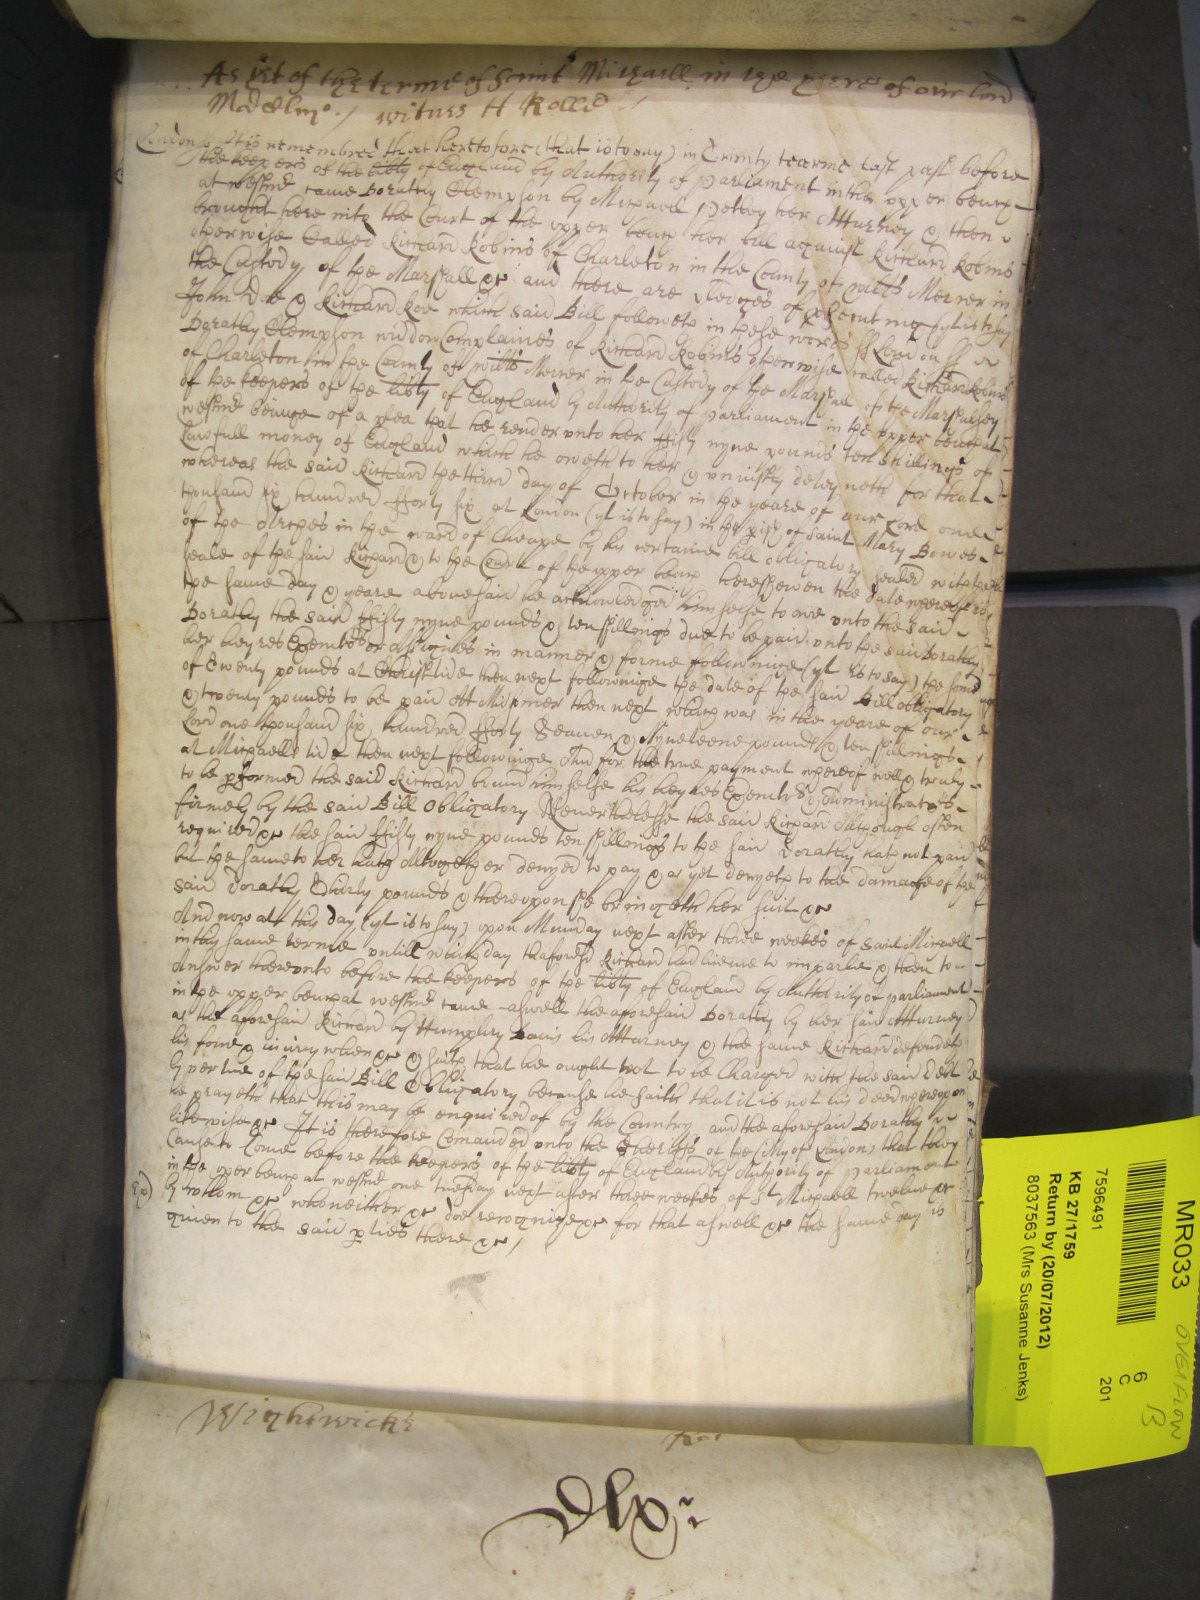 As yet of the terme of Saint Michaell in the yeere of our lord
Mdclmo. / witnes H Rolle /
London ss It is remembred that heretofore (that is to say) in Trinity tearme last past before
the keepers of the libty of England by Authority of Parliament in the upper bench
at westmr came Dorathy Clempson by Michaell Petley her Atturney & then
brought here into the Court of the upper bench her bill against Richard Robins
otherwise Called Richard Robins of Charleton in the County of wilts Mercer in
the Custody of the Marshall &c and there are pledges of psecuting (yt is to say
John Doe & Richard Roe which said Bill followeth in these words ss London ss
Dorathy Clempson widdow Complaines of Richard Robins otherwise called Richard Robins
of Charleton in the County of wilts Mercer in the Custody of the Marshall of the Marshalsey
of the keepers of the libty of England by Authority of Parliament in the upper bench at
westmr beinge of a plea that he render unto her ffifty nyne pounds ten shillings of
Lawfull money of England which he oweth to her & uniustly deteyneth for that
whereas the said Richard the third day of October in the yeare of our Lord one
thousand six hundred fforty six at London (yt is to say) in the pish of Saint Mary Bowes
of the Arches in the ward of Cheape by his certaine bill obligatory sealed with the
seale of the said Richard & to the Court of the upper bench here shewen the date whereof is
the same day & yeare abovesaid he acknowledged himselfe to owe unto the said
Dorathy the said ffifty nyne pounds & ten shillings due to be paid unto the said Dorathy
her heyres Executors or assignes in manner & forme followinge (yt is to say) the some
of Twenty pounds at Christide then next followinge the date of the said Bill obligatory
& twenty pounds to be paid At Midsomer then next which was in the yeare of our
Lord one thousand six hundred fforty Seaven & Nyneteene pounds & ten shillings
at Michaells tide then next followinge And for the true payment whereof well & truly
to be pformed the said Richard bound himselfe his heyres Executors & Administrators
firmely by the said Bill Obligatory Neverthelesse the said Richard Although often
required &c the said ffifty nyne pounds ten shillings to the said Dorathy hath not paid
but the same to her hath altogether denyed to pay & as yet denyeth to the damage of the
said Dorathy Thirty pounds & thereupon she bringeth her suit &c
And now at this day (yt is to say) upon Munday next after three weekes of saint Michaell
in this same terme untill which day thaforesd Richard had licence to imparle & then to
Answer thereunto before the keepers of the libty of England by Authority of parliament
in the upper bench at westmr came aswell the aforesaid Dorathy by her said Atturney
as the aforesaid Richard by Humphry Davis his Atturney & the same Richard defendeth
his force & iniury when &c & saith that he ought not to be Charged with the said debt
by vertue of the said Bill Obligatory because he saith that it is not his deed whereupon
he prayeth that this may be enquired of by the Country and the aforesaid Dorathy
likewise &c It is therefore Comanded unto the Sheriffs of the (City of London) that they
Cause to Come before the keepers of the libty of England by Authority of Parliament
in the uper bench at westmr one tuesday next after three weekes of St Michaell twelve &c
by whom &c who neither &c doe recognize &c for that aswell &c the same day is
given to the said pties there &c /
Wightwicke
Rot
Dlx
MR033
OVERFLOW
B
6
C
201
7596491
KB 27/1759
Return by (20/07/2012)
8037563 (Mrs Susanne Jenks)